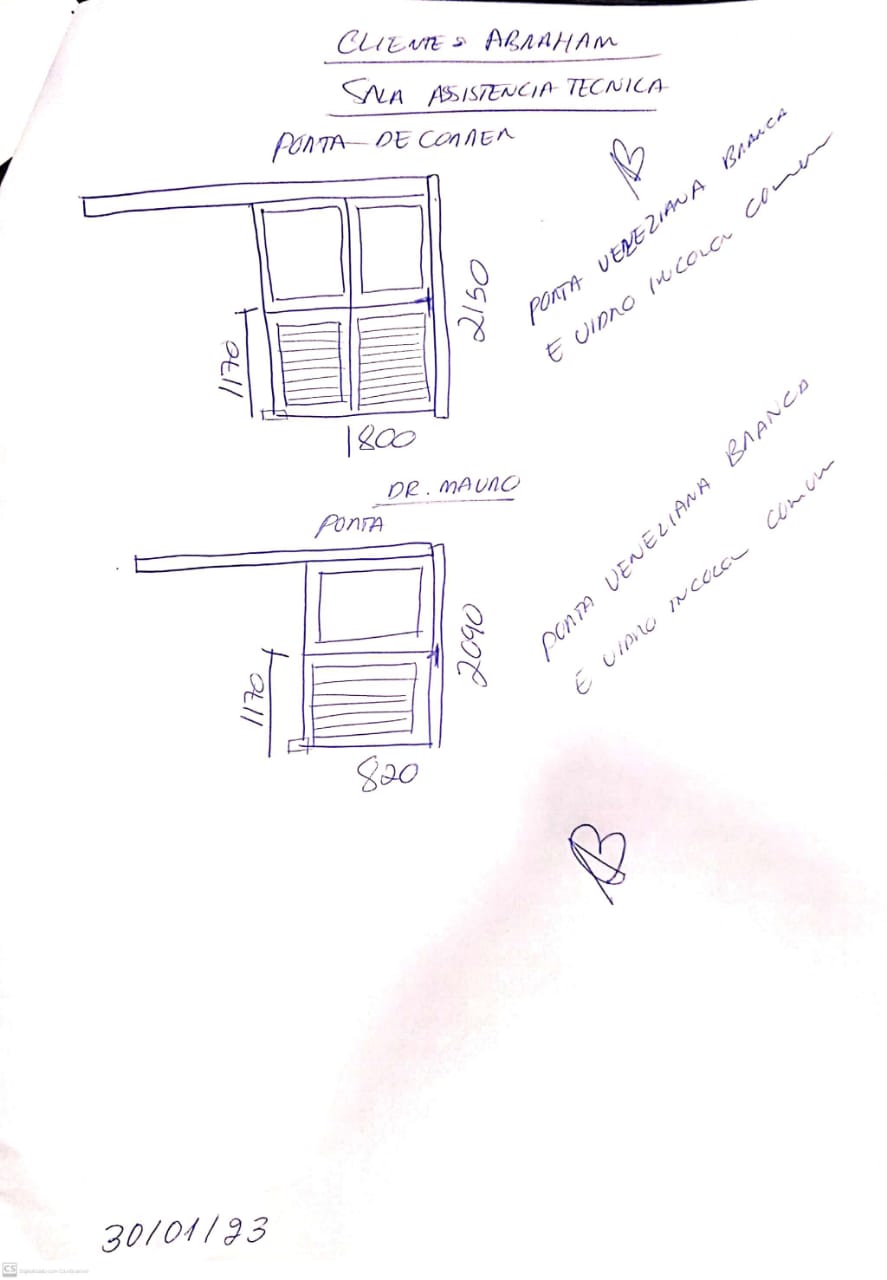 CLIENTE: ABRAHAM
SALA ASSISTENCIA TECNICA
PORTA DE CORRER
PORTA VENEZIANA BRANCA
E VIDRO INCOLOR COMUM
2150
1170
1800
DR. MAURO
PORTA
PORTA VENEZIANA BRANCA
E VIDRO INCOLOR COMUM
2090
1170
820
30/01/23
CS Digitalizado com CamScanner